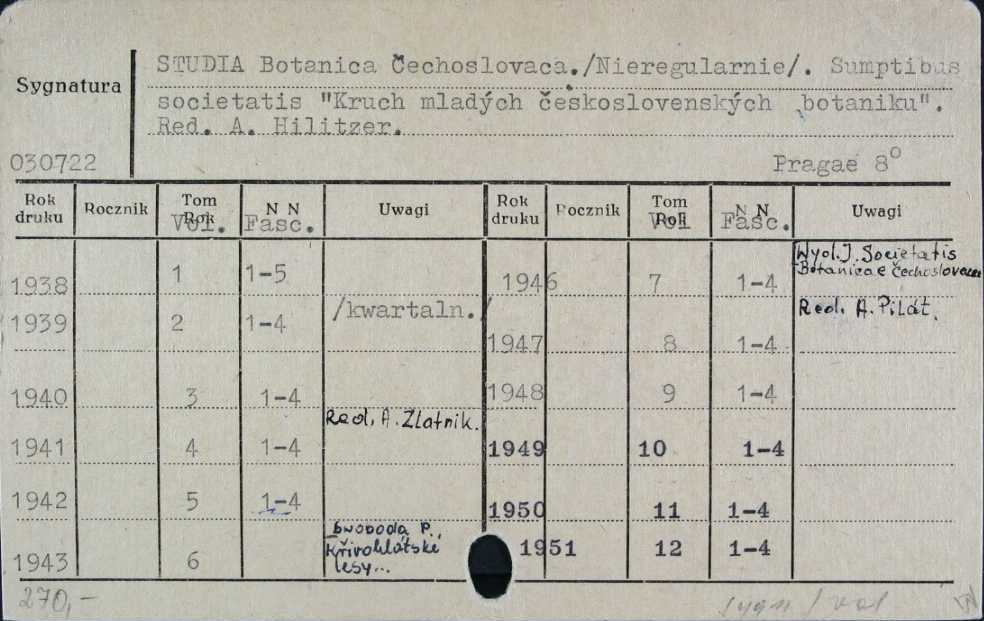 STUDIA Botanica Čechoslovaca./Nieregularnie/. Sumptibus
Sygnatura
societatis "Kruch mladých československých botaniku".
Red. A. Hilitzer.
030722 Pragae 8°
Rok druku Rocznik Tom Rok Vol. N N Fasc. Uwagi Rok druku Rocznik Tom Rok Vol N N Fasc. Uwagi
1938 1 1-5
1939 2 1-4 /kwartaln./
1940 3 1-4
1941 4 1-4 Red. A. Zlatnik.
1942 5 1-4
1943 6 Swoboda P., Křivoklátské lesy...
1946 7 1-4 Wyd. J. Societatis Botanicae Čechoslovacae
Red. A. Pilát.
1947 8 1-4
1948 9 1-4
1949 10 1-4
1950 11 1-4
1951 12 1-4
270,- sygn / vol